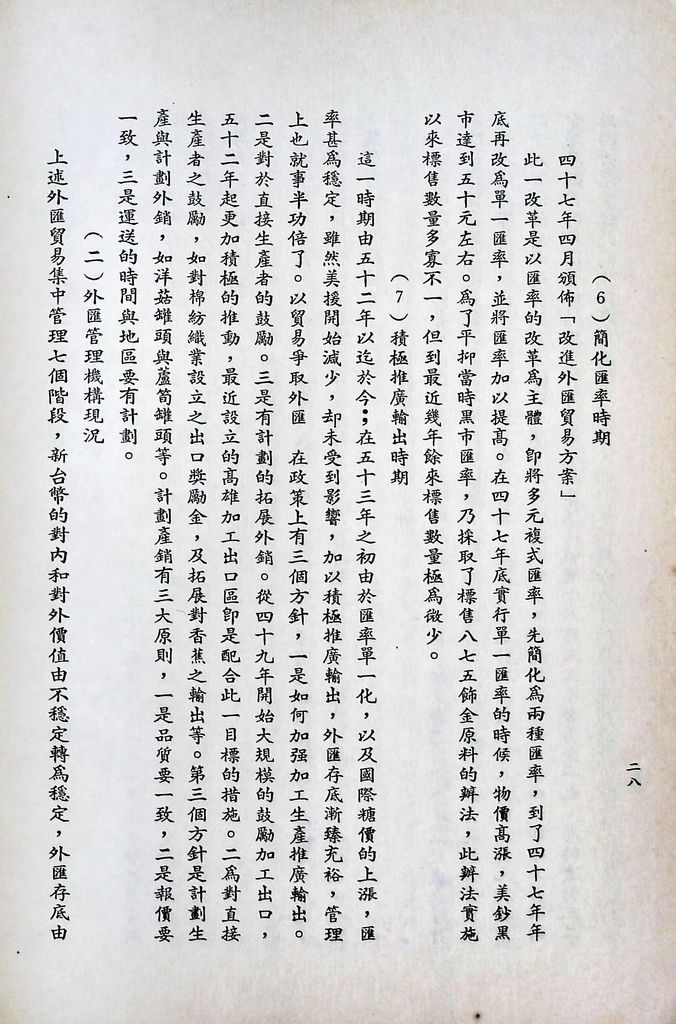 二八
(6)簡化匯率時期
四十七年四月頒佈「改進外匯貿易方案」
此一改革是以匯率的改革爲主體，卽將多元複式匯率，先簡化爲兩種匯率，到了四十七年年
底再改爲單一匯率，並將匯率加以提高。在四十七年底實行單一匯率的時候，物價高漲，美鈔黑
市達到五十元左右。爲了平抑當時黑市匯率，乃採取了標售八七五飾金原料的辦法，此辦法實施
以來標售數量多寡不一，但到最近幾年餘來標售數量極爲微少。
(7)積極推廣輸出時期
這一時期由五十二年以迄於今；在五十三年之初由於匯率單一化，以及國際糖價的上漲，匯
率甚爲穩定，雖然美援開始減少，却未受到影響，加以積極推廣輸出，外匯存底漸臻充裕，管理
上也就事半功倍了。以貿易爭取外匯　在政策上有三個方針，一是如何加强加工生產推廣輸出。
二是對於直接生產者的鼓勵。三是有計劃的拓展外銷。從四十九年開始大規模的鼓勵加工出口，
五十二年起更加積極的推動，最近設立的高雄加工出口區卽是配合此一目標的措施。二爲對直接
生產者之鼓勵，如對棉紡織業設立之出口獎勵金，及拓展對香蕉之輸出等。第三個方針是計劃生
產與計劃外銷，如洋菇罐頭與蘆筍罐頭等。計劃產銷有三大原則，一是品質要一致，二是報價要
一致，三是運送的時間與地區要有計劃。
(二)外匯管理機構現況
上述外匯貿易集中管理七個階段，新台幣的對內和對外價值由不穩定轉爲穩定，外匯存底由